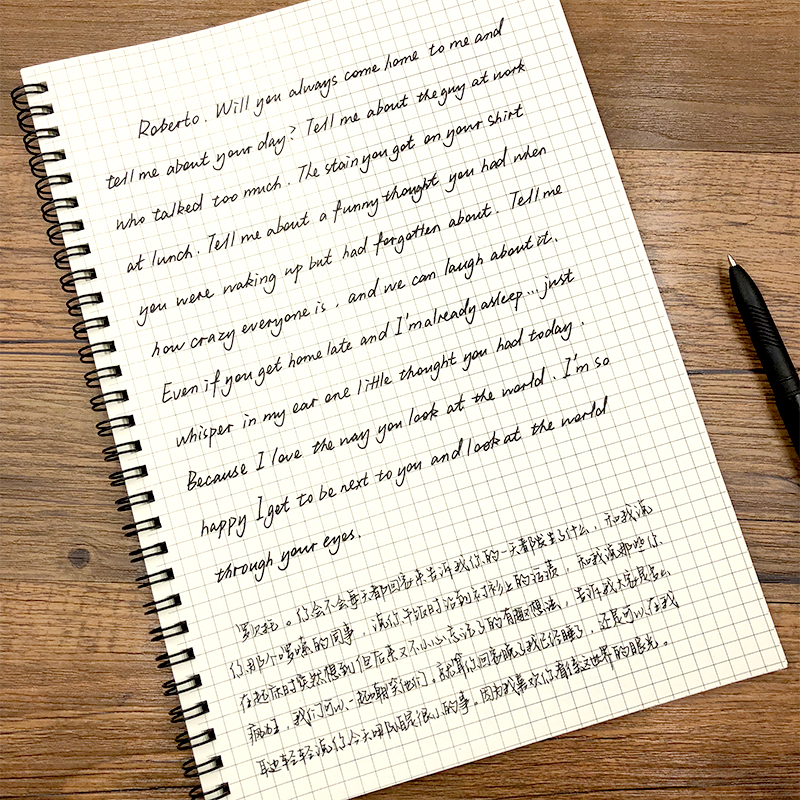 Roberto. Will you always come home to me and
tell me about your day? Tell me about the guy at work
who talked too much. The stain you got on your shirt
at lunch. Tell me about a funny thought you had when
you were waking up but had forgotten about. Tell me
how crazy everyone is, and we can laugh about it.
Even if you get home late and I'm already asleep... just
whisper in my ear one little thought you had today.
Because I love the way you look at the world. I'm so
happy I get to be next to you and look at the world
through your eyes.
罗伯托。你会不会每天都回家来告诉我你的一天都发生了什么,和我说
你那个啰嗦的同事,说你午饭时沾到衬衫上的污渍,和我说那些你
在起床时突然想到但后来又不小心忘记了的有趣想法,告诉我大家是多么
疯狂,我们可以一起嘲笑他们。就算你回家晚了我已经睡了,还是可以在我
耳边轻轻说你今天哪怕是很小的事。因为我喜欢你看待这世界的眼光。